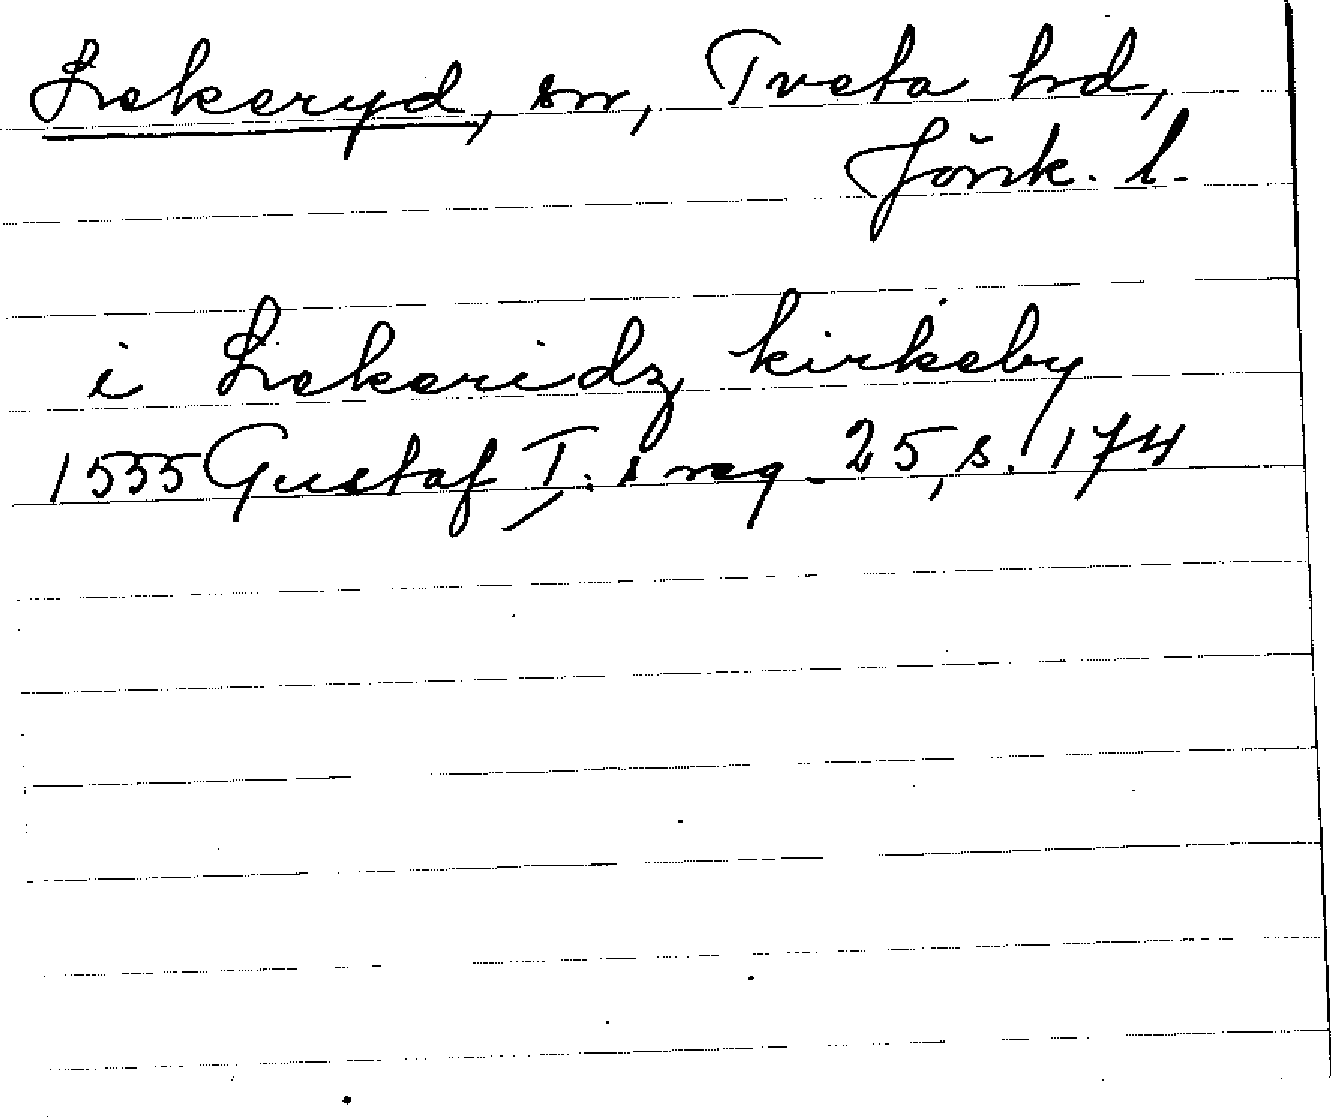 Lekeryd, sn, Tveta hd,
Jönk. l.
i Lekeridz kirkeby
1555 Gustaf I:s reg. 25, s. 174